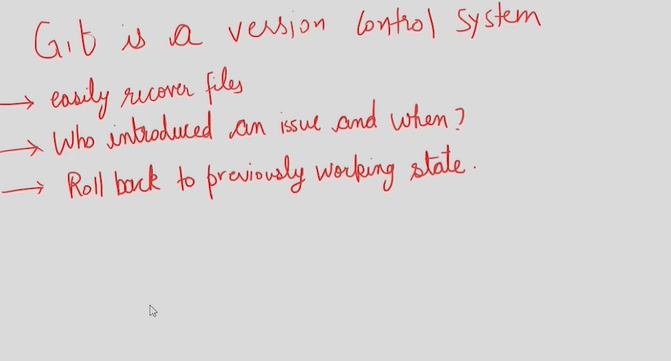 Git is a version control system
→ easily recover files
→ Who introduced an issue and when?
→ Roll back to previously working state.